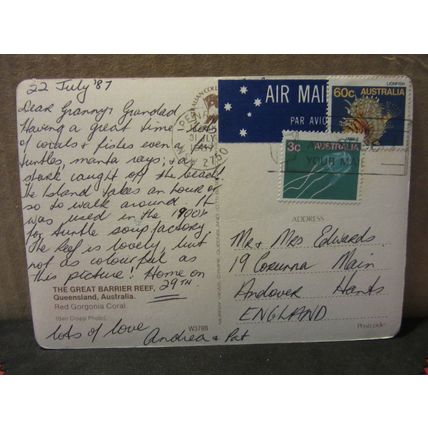 22 July '87
Dear Granny & Grandad
Having a great time, lots
of corals & fishes even a
turtles, manta rays, & a
shark caught off the beach.
The Island takes an hour or
so to walk around. It
was used in the 1900's
for turtle soup factory.
The Reef is lovely but
not as colourful as
this picture! Home on
29TH.
THE GREAT BARRIER REEF,
Queensland, Australia.
Red Gorgonia Coral.
(Ben Cropp Photo)
W378B
lots of love
Andrea & Pat
AIR MAIL
PAR AVION
LIONFISH
60c AUSTRALIA
3c AUSTRALIA
31 JLY
2750
YOUR MAIL
ADDRESS
Mr & Mrs Edwards.
19 Corunna Main
Andover Hants
ENGLAND
Postcode